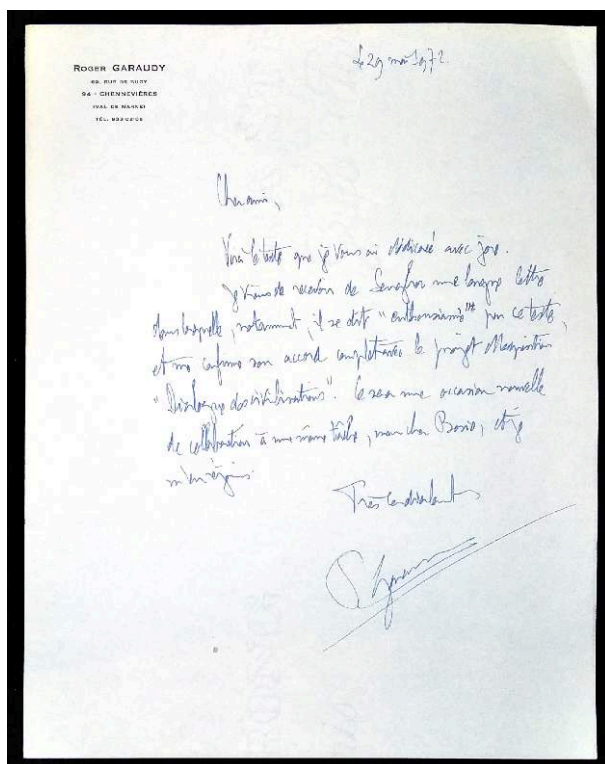 ROGER GARAUDY
69, RUE DE SUCY
94 - CHENNEVIÈRES
(VAL DE MARNE)
TÉL.
Le 29 mai 1972.
Cher ami,
Voici le texte que je vous ai dédicacé avec joie.
Je viens de recevoir de Senghor une longue lettre
dans laquelle, notamment, il se dit "enthousiasmé" par ce texte,
et me confirme son accord complet avec le projet
"Dialogue des civilisations". Ce sera une occasion nouvelle
de collaboration à une même tâche, mon cher, et je
m'en réjouis.
Très cordialement